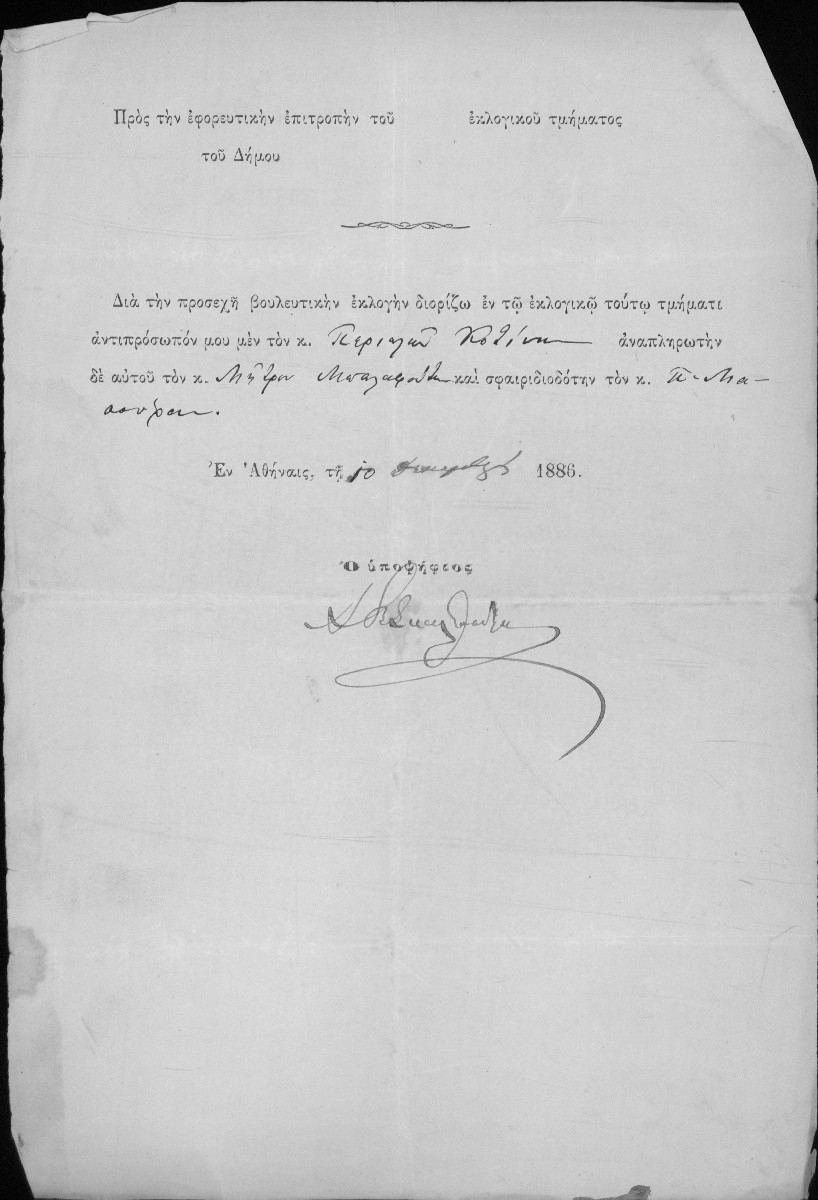 Πρὸς τὴν ἐφορευτικὴν ἐπιτροπὴν τοῦ ἐκλογικοῦ τμήματος
τοῦ Δήμου
Διὰ τὴν προσεχῆ βουλευτικὴν ἐκλογὴν διορίζω ἐν τῷ ἐκλογικῷ τούτῳ τμήματι
ἀντιπρόσωπόν μου μὲν τὸν κ. ἀναπληρωτὴν
δὲ αὐτοῦ τὸν κ. Μῆτρον καὶ σφαιριδιοδότην τὸν κ. Π.
Ἐν Ἀθήναις, τῇ 10 1886.
Ὁ ὑποψήφιος